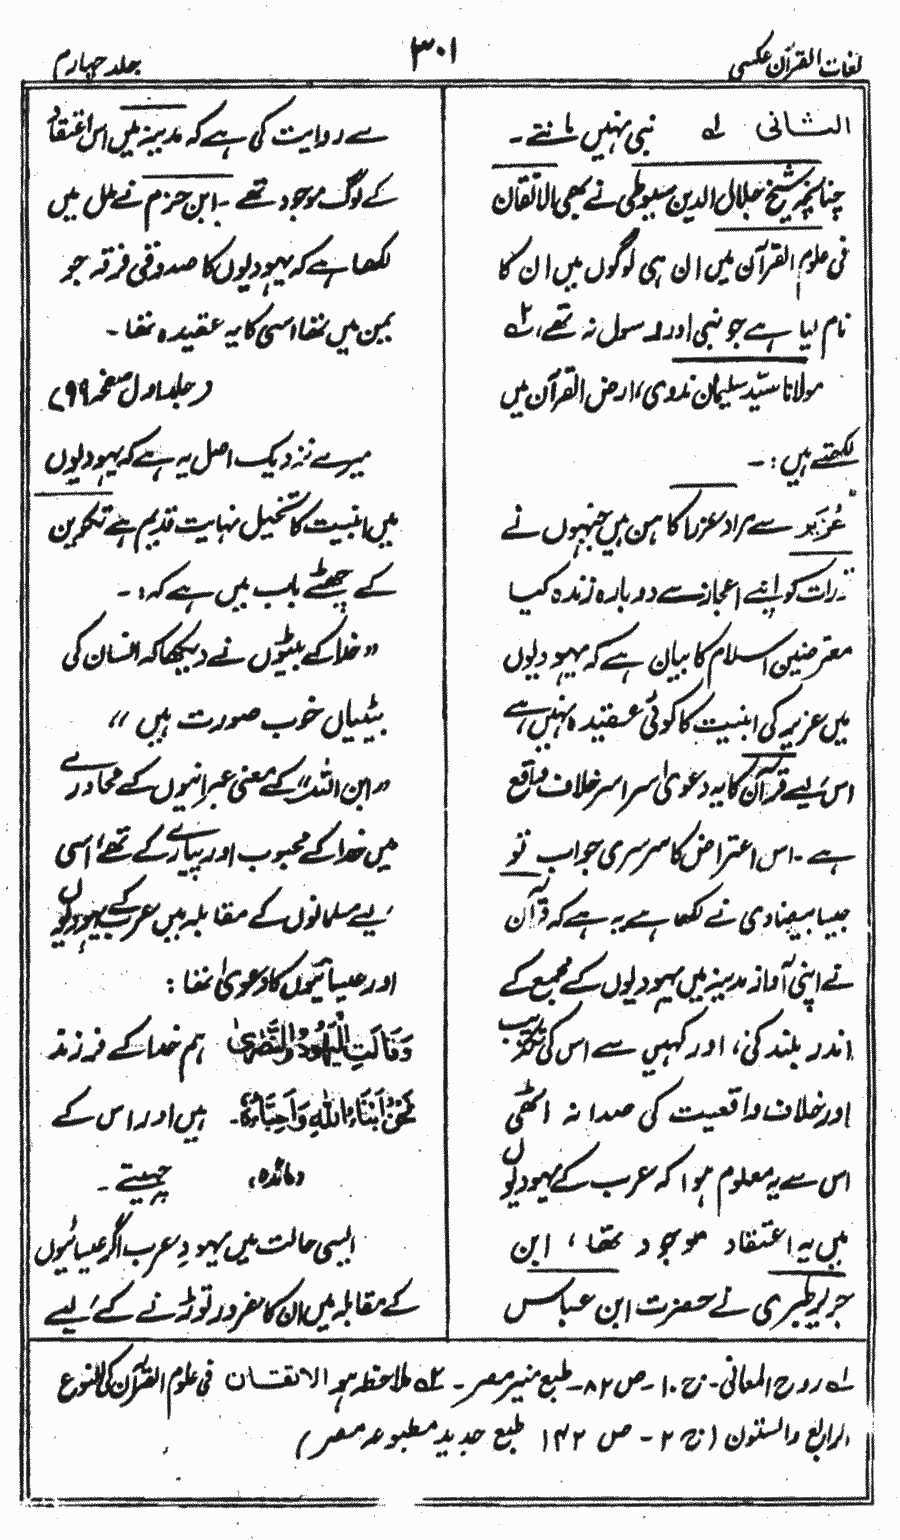 لغات القرآن عکسی
۳۰۱
جلد چہارم
الثانی لہ نبی نہیں مانتے ۔
چنانچہ شیخ جلال الدین سیوطی نے بھی الاتقان
فی علوم القرآن میں ان ہی لوگوں میں ان کا
نام لیا ہے جو نبی اور رسول نہ تھے، ۲ہ
مولانا سیّد سلیمان ندوی، ارض القرآن میں
لکھتے ہیں : ۔
"عُزَیر سے مراد عزرا کاہن ہیں جنہوں نے
تورات کو اپنے اعجاز سے دوبارہ زندہ کیا
معترضین اسلام کا بیان ہے کہ یہودیوں
میں عزیر کی ابنیت کا کوئی عقیدہ نہیں ہے،
اس لیے قرآن کا یہ دعویٰ سراسر خلاف واقع
ہے ۔ اس اعتراض کا سرسری جواب تو
جیسا بیضاوی نے لکھا ہے یہ ہے کہ قرآن
نے اپنی آواز مدینہ میں یہودیوں کے مجمع کے
اندر بلند کی، اور کہیں سے اس کی تکذیب
اور خلاف واقعیت کی صدا نہ اٹھی
اس سے یہ معلوم ہوا کہ عرب کے یہودیوں
میں یہ اعتقاد موجود تھا ، ابن
جریر طبری نے حضرت ابن عباس
سے روایت کی ہے کہ مدینہ میں اس اعتقاد
کے لوگ موجود تھے ۔ ابن حزم نے ملل میں
لکھا ہے کہ یہودیوں کا صدوقی فرقہ جو
یمن میں تھا اسی کا یہ عقیدہ تھا ۔
(جلد اول صفحہ ۹۹)
میرے نزدیک اصل یہ ہے کہ یہودیوں
میں ابنیت کا تخیل نہایت قدیم ہے تکوین
کے چھٹے باب میں ہے کہ : ۔
"خدا کے بیٹوں نے دیکھا کہ انسان کی
بیٹیاں خوب صورت ہیں"
"ابن اللہ" کے معنی عبرانیوں کے محاورے
میں خدا کے محبوب اور پیارے کے تھے، اسی
لیے مسلمانوں کے مقابلہ میں عرب کے یہودیوں
اور عیسائیوں کا دعویٰ تھا :
وَقَالَتِ الْيَهُودُ وَالنَّصٰرٰى ہم خدا کے فرزند
نَحْنُ اَبْنَاءُ اللّٰهِ وَاَحِبَّاؤُهٗ ۔ ہیں اور اس کے
(مائدہ) چہیتے ۔
ایسی حالت میں یہودِ عرب اگر عیسائیوں
کے مقابلہ میں ان کا مغرور توڑنے کے لیے
لہ روح المعانی ۔ ج ۱۰ ۔ ص ۸۲ ۔ طبع منیر مصر ۔ ۲ہ ملاحظہ ہو الاتقان فی علوم القرآن کی النوع
الرابع والستون (ج ۲ ۔ ص ۱۴۲ طبع جدید مطبوعہ مصر)